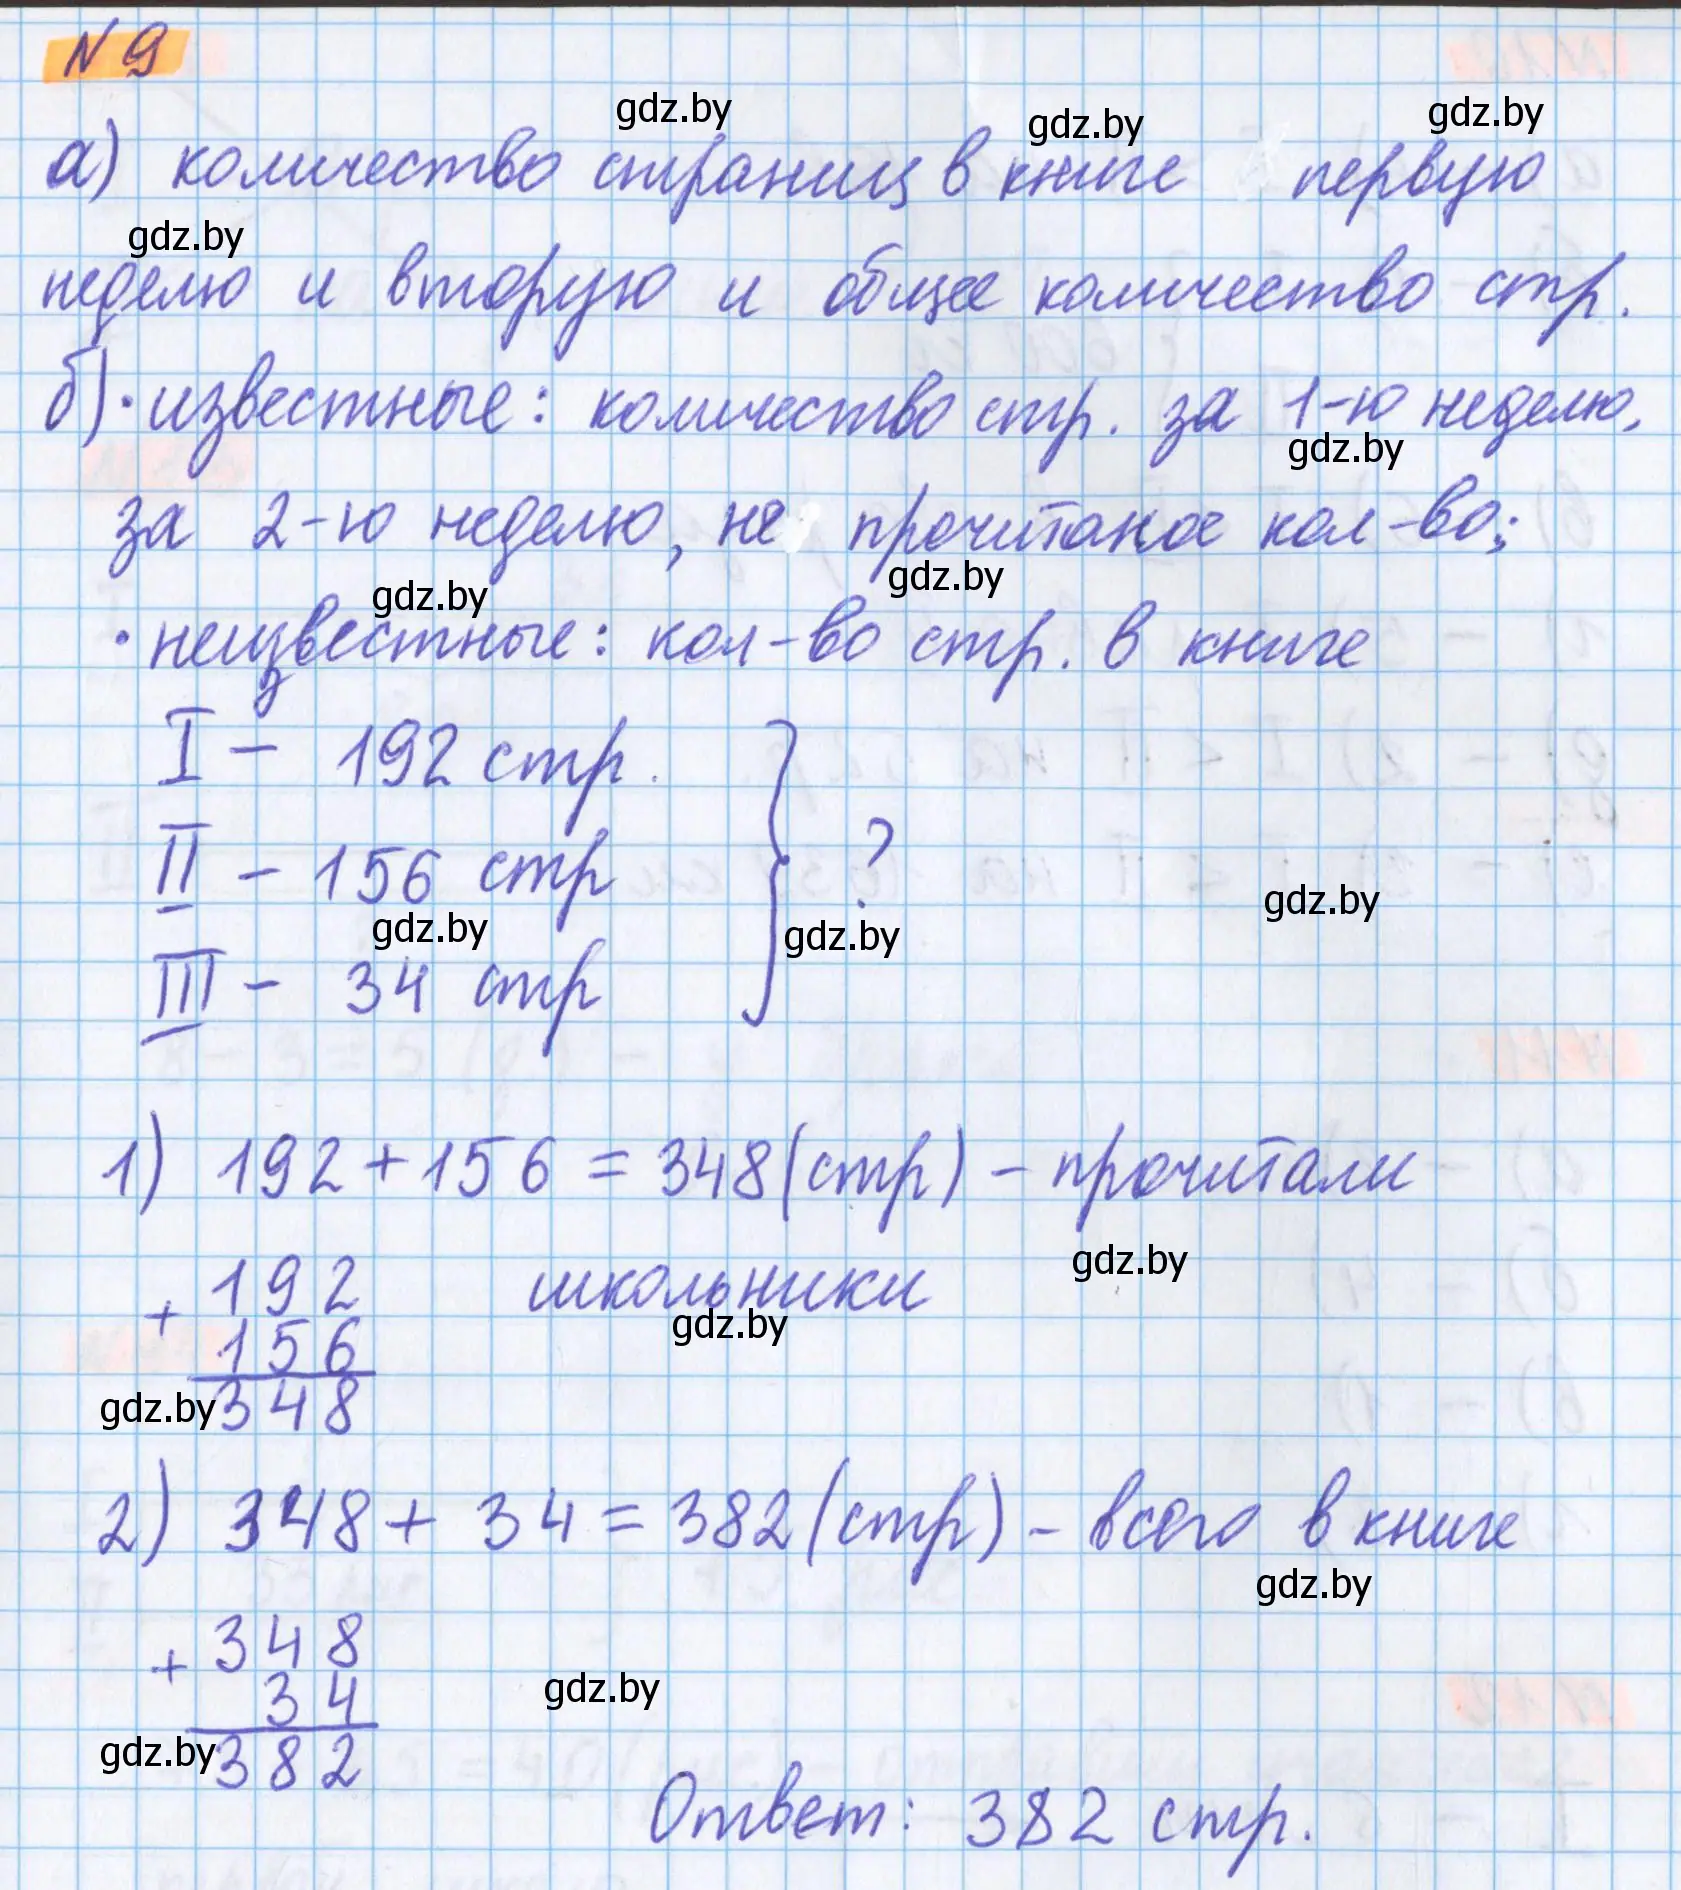 N 9
gdz.by gdz.by gdz.by
а) количество страниц в книге первую
gdz.by
неделю и вторую и общее количество стр.
б) · известные: количество стр. за 1-ю неделю,
gdz.by
за 2-ю неделю, не прочитаное кол-во;
gdz.by gdz.by
· неизвестные: кол-во стр. в книге
I - 192 стр.
II - 156 стр } ?
gdz.by gdz.by gdz.by
III - 34 стр
1) 192 + 156 = 348 (стр) - прочитали
gdz.by
+ 192 школьники
gdz.by
156
gdz.by 348
2) 348 + 34 = 382 (стр) - всего в книге
gdz.by
+ 348
34 gdz.by
gdz.by 382
Ответ: 382 стр.